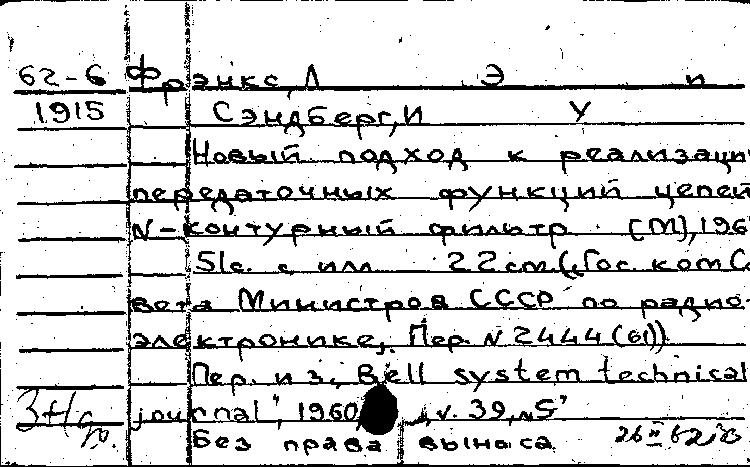 62-6 Фрэнкс, Л Э и
1915 Сэндберг, И У
Новый подход к реализаци
передаточных функций цепей
N-контурный фильтр. [М], 196
51с. с илл 22 см. (Гос. ком. С
вета Министров СССР по радио-
электронике, Пер. N 2444 (61))
Пер. из: "Bell system technical
journal", 1960, v. 39, N5
Без права выноса